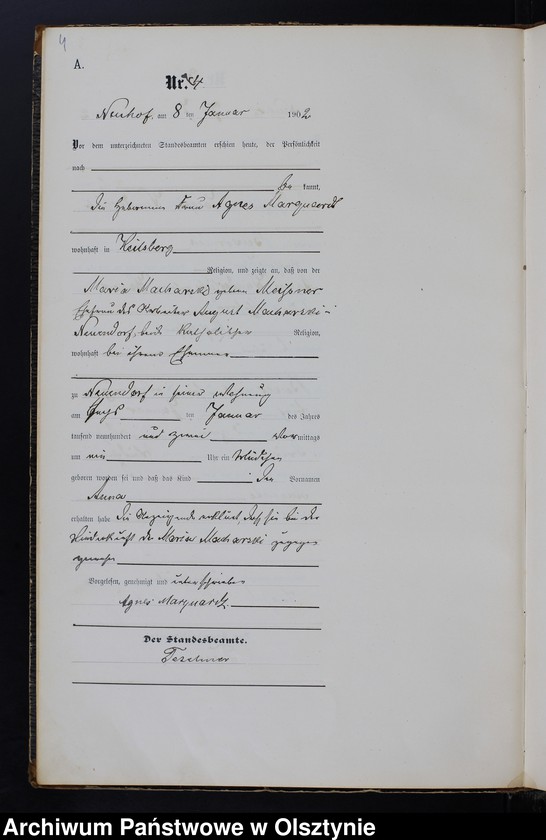 4
A.
Nr. 4
Neuhof, am 8 ten Januar 1902
Vor dem unterzeichneten Standesbeamten erschien heute, der Persönlichkeit
nach
be kannt,
die Hebamme Frau Agnes Marquardt
wohnhaft in Heilsberg
Religion, und zeigte an, daß von der
Maria Macharski geborene Meißner
Ehefrau des Arbeiter August Macharski in
Neuendorf, beide katholischer Religion,
wohnhaft bei ihrem Ehemann
zu Neuendorf in seiner Wohnung
am sechs ten Januar des Jahres
tausend neunhundert und zwei Vormittags
um ein Uhr ein Mädchen
geboren worden sei und daß das Kind den Vornamen
Anna
erhalten habe. Die Anzeigende erklärt, daß sie bei der
Niederkunft der Maria Macharski zugegen
gewesen
Vorgelesen, genehmigt und unterschrieben
Agnes Marquardt
Der Standesbeamte.
Teschner
Archiwum Państwowe w Olsztynie